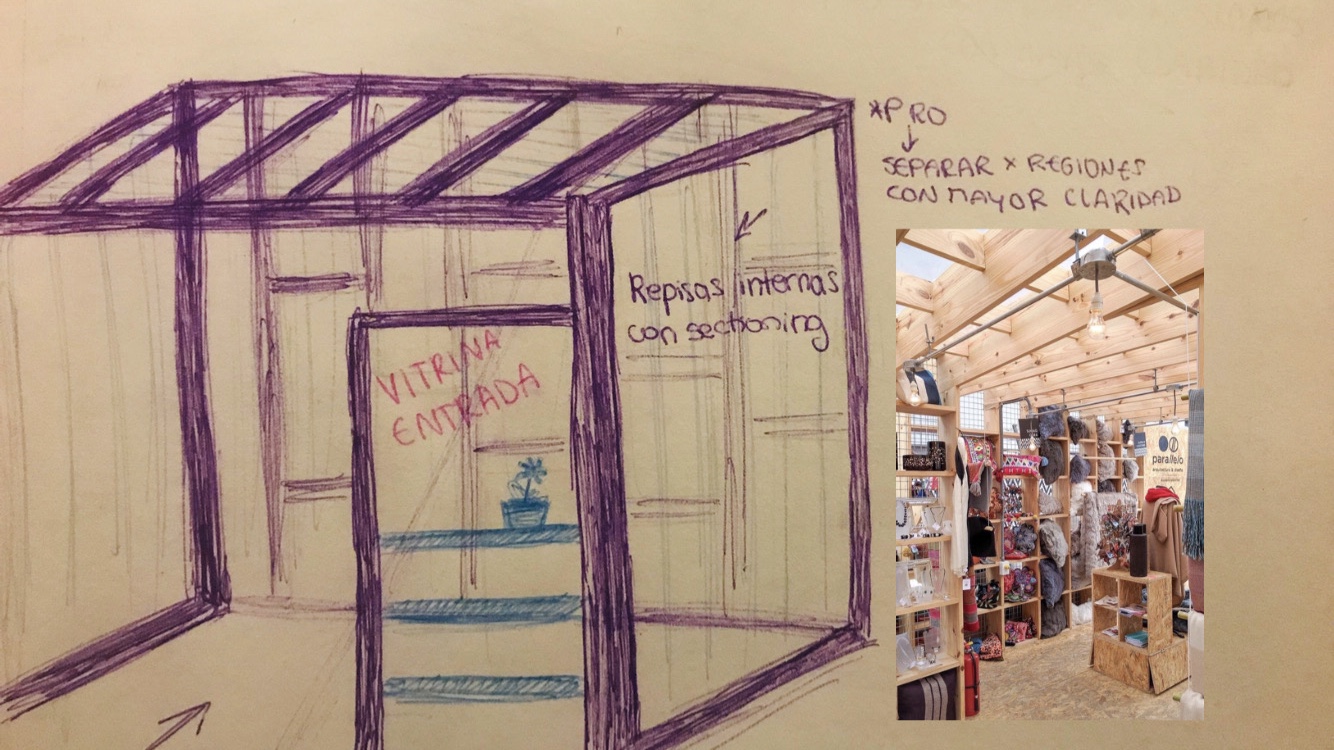 *PRO
SEPARAR x REGIONES
CON MAYOR CLARIDAD
Repisas internas
con sectioning
VITRINA
ENTRADA
parallelo